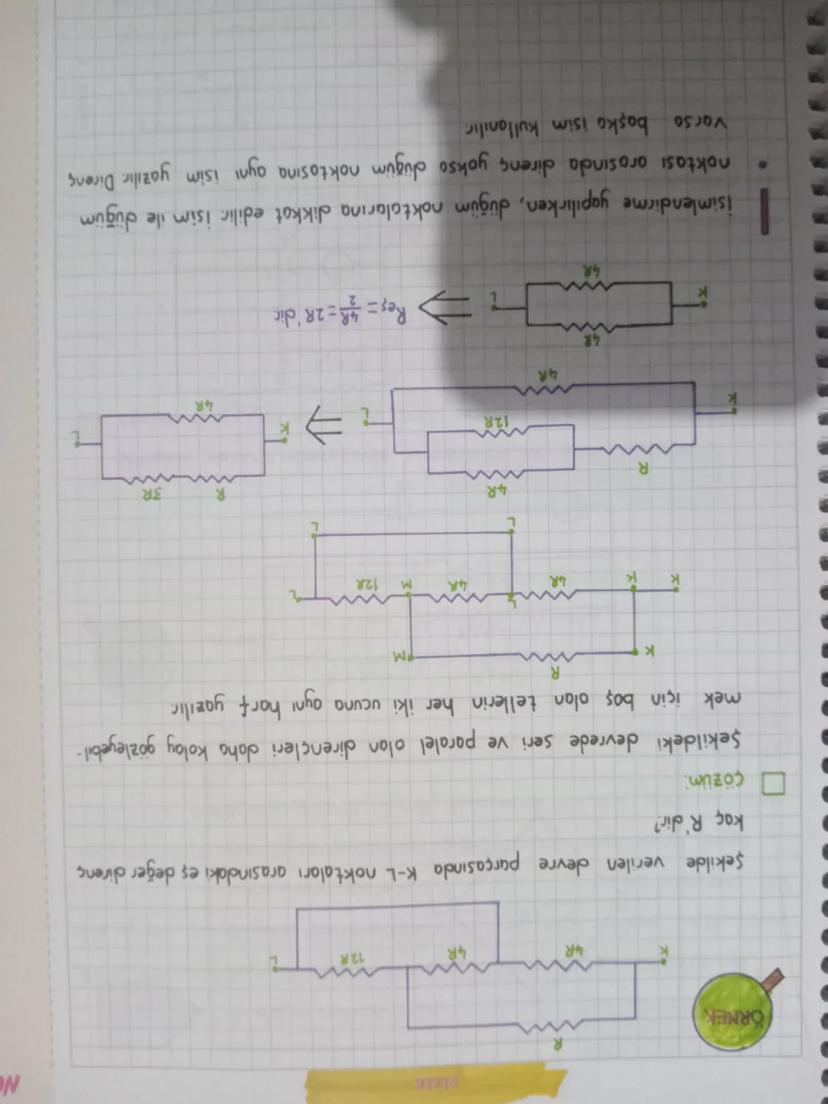 FİZİK
ÖRNEK
R
K 4R 4R 12R L
Şekilde verilen devre parçasında K-L noktaları arasındaki eş değer direnç
kaç R'dir?
Çözüm:
Şekildeki devrede seri ve paralel olan dirençleri daha kolay gözleyebil-
mek için boş olan tellerin her iki ucuna aynı harf yazılır.
R
K M
K K 4R L 4R M 12R L
L L
4R
R 12R
K L
4R
R 3R
K L
4R
4R
K L
4R
Reş = 4R/2 = 2R'dir.
İsimlendirme yapılırken, düğüm noktalarına dikkat edilir isim ile düğüm
noktası arasında direnç yoksa düğüm noktasına aynı isim yazılır. Direnç
varsa başka isim kullanılır.